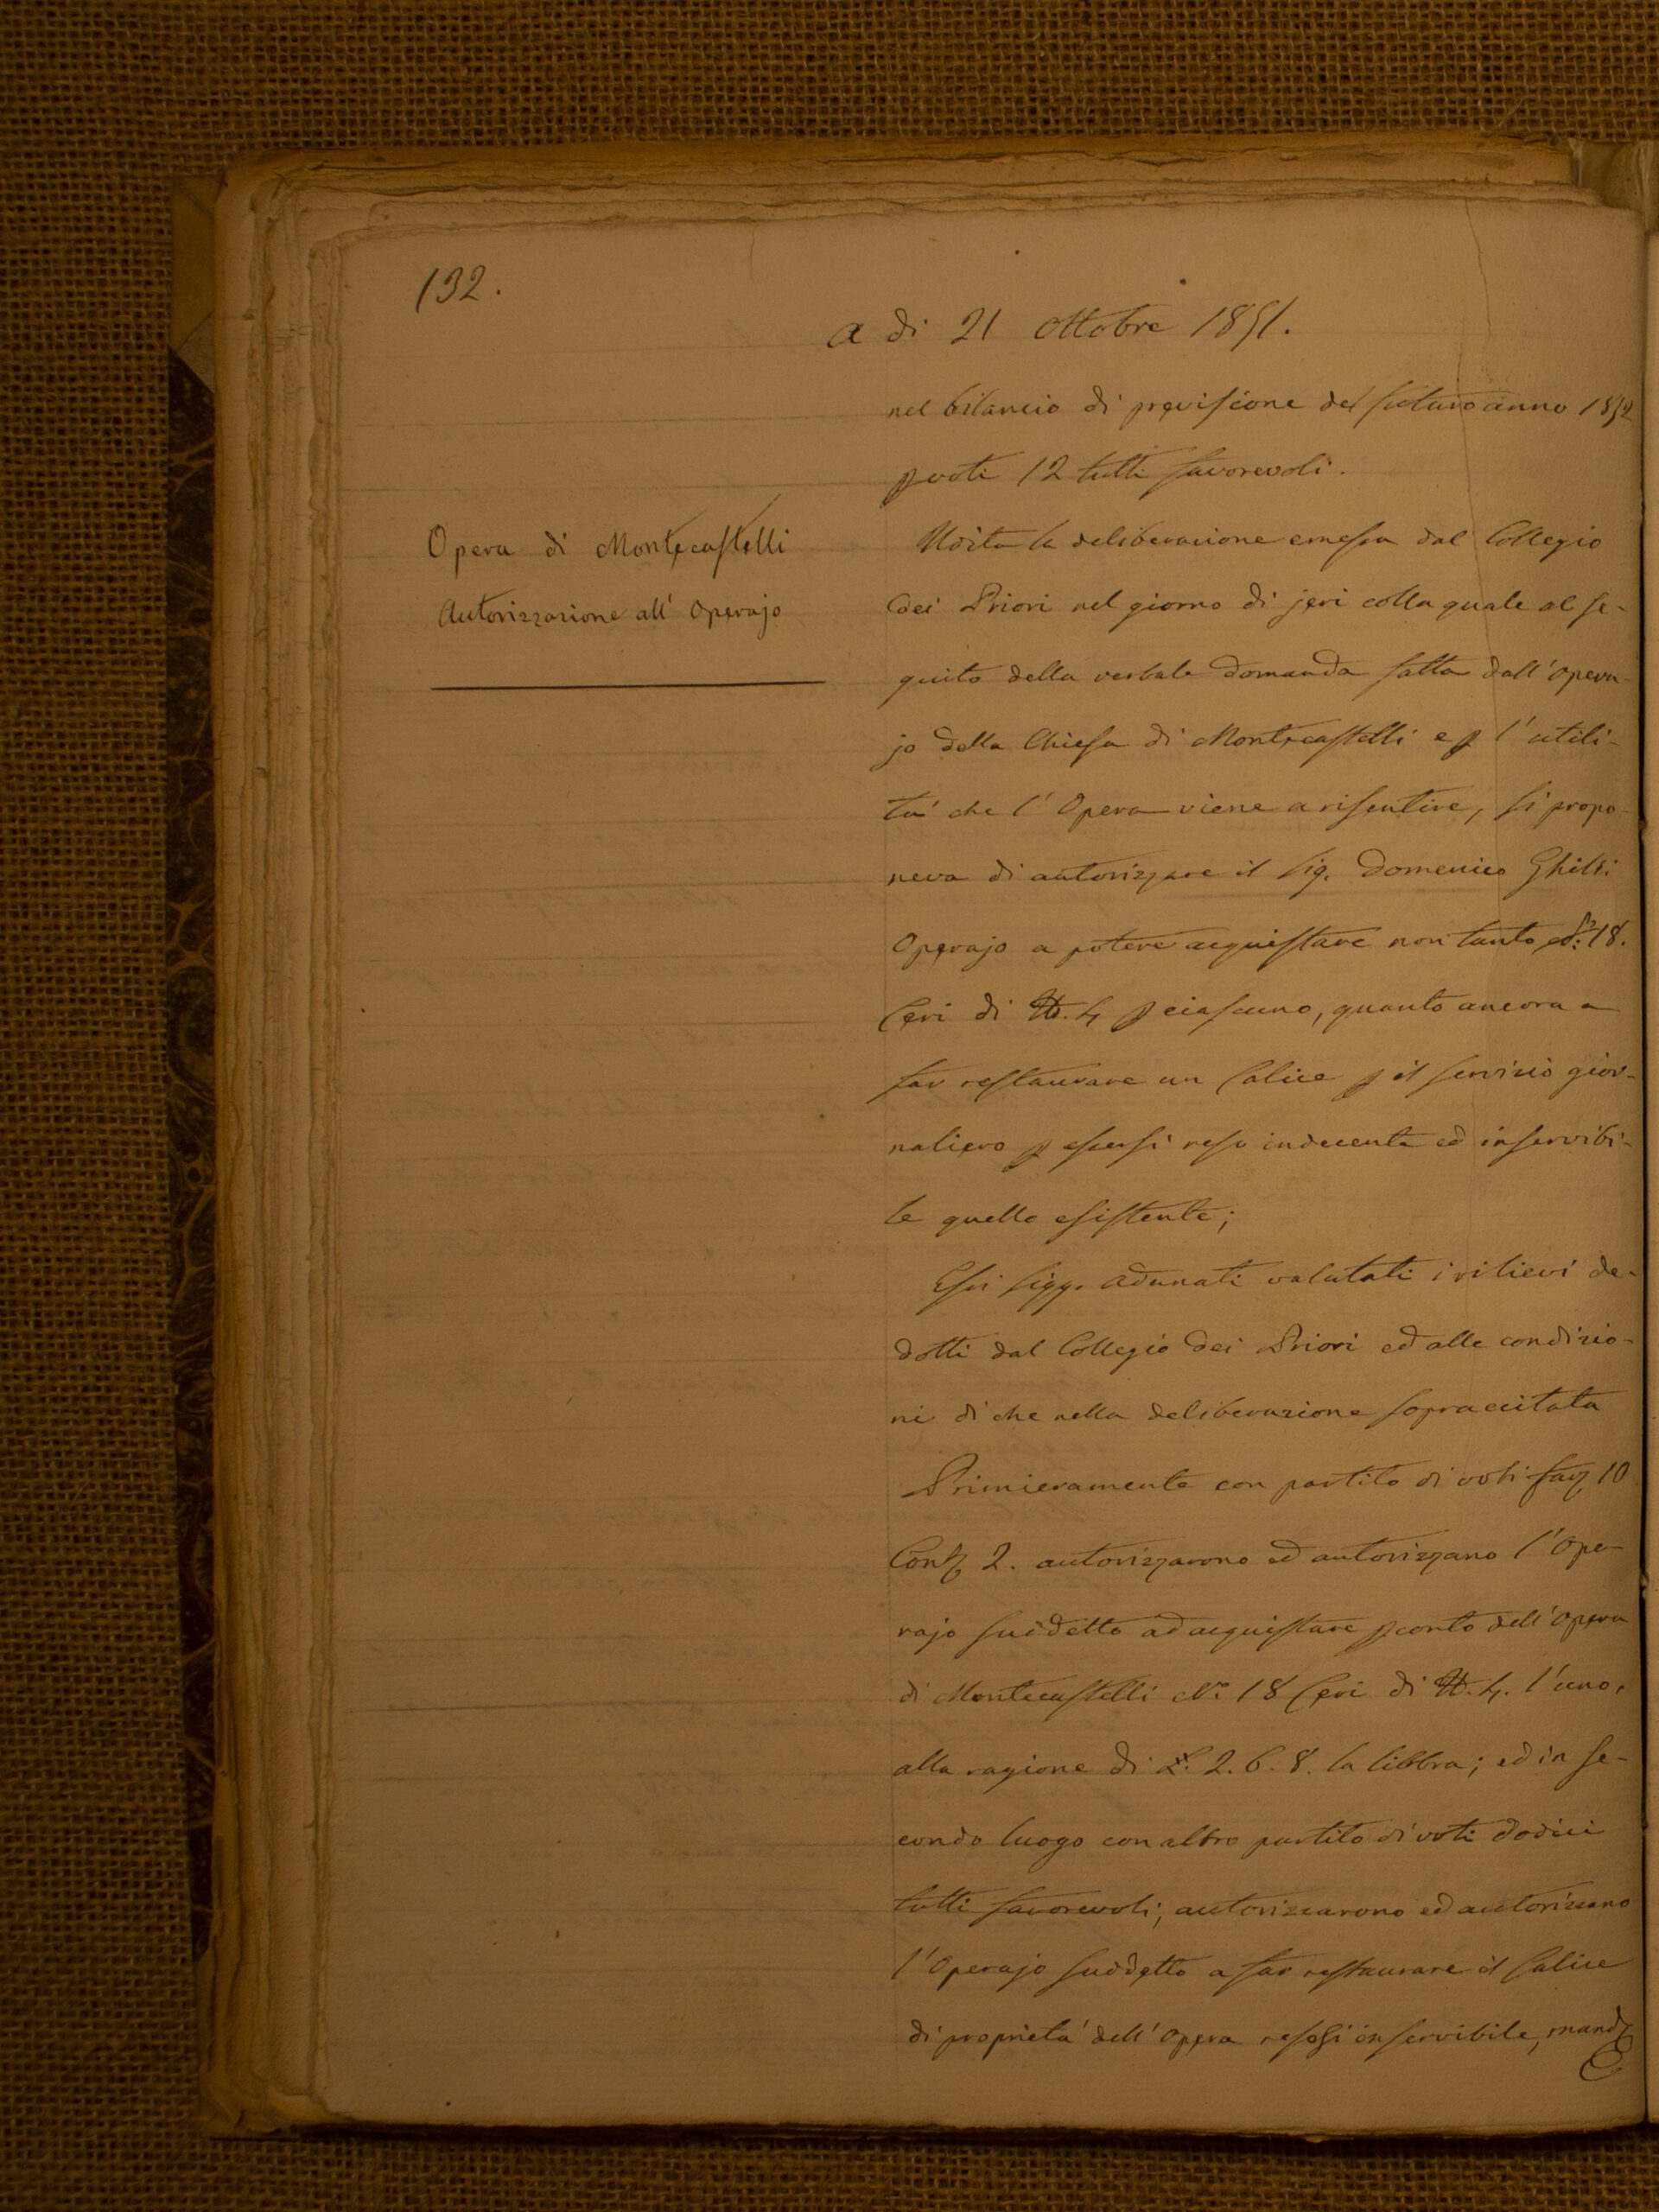 132.
a dì 21 Ottobre 1851.
nel bilancio di previsione del futuro anno 1852
p voti 12 tutti favorevoli.
Opera di Montecastelli
Autorizzazione all' Operajo
Udita la deliberazione emessa dal Collegio
dei Priori nel giorno di jeri colla quale al se-
guito della verbale domanda fatta dall' Opera-
jo della Chiesa di Montecastelli e p l' utili-
tà che l' Opera viene a risentire, si propo-
neva di autorizzare il Sig. Domenico Ghilli
Operajo a potere acquistare non tanto 18.
Ceri di ℔. 4 p ciascuno, quanto ancora a
far restaurare un Calice p il servizio gior-
naliero p essersi reso indecente ed inservibi-
le quello esistente;
Essi Sigg. Adunati valutati i rilievi de-
dotti dal Collegio dei Priori ed alle condizio-
ni di che nella deliberazione sopraccitata
Primieramente con partito di voti fav 10
Cont 2. autorizzarono ed autorizzano l' Ope-
rajo suddetto ad acquistare p conto dell' Opera
di Montecastelli N.° 18 Ceri di ℔. 4. l' uno,
alla ragione di £. 2. 6. 8. la libbra; ed in se-
condo luogo con altro partito di voti dodici
tutti favorevoli, autorizzarono ed autorizzano
l' Operajo suddetto a far restaurare il Calice
di proprietà dell' Opera resosi inservibile, mand